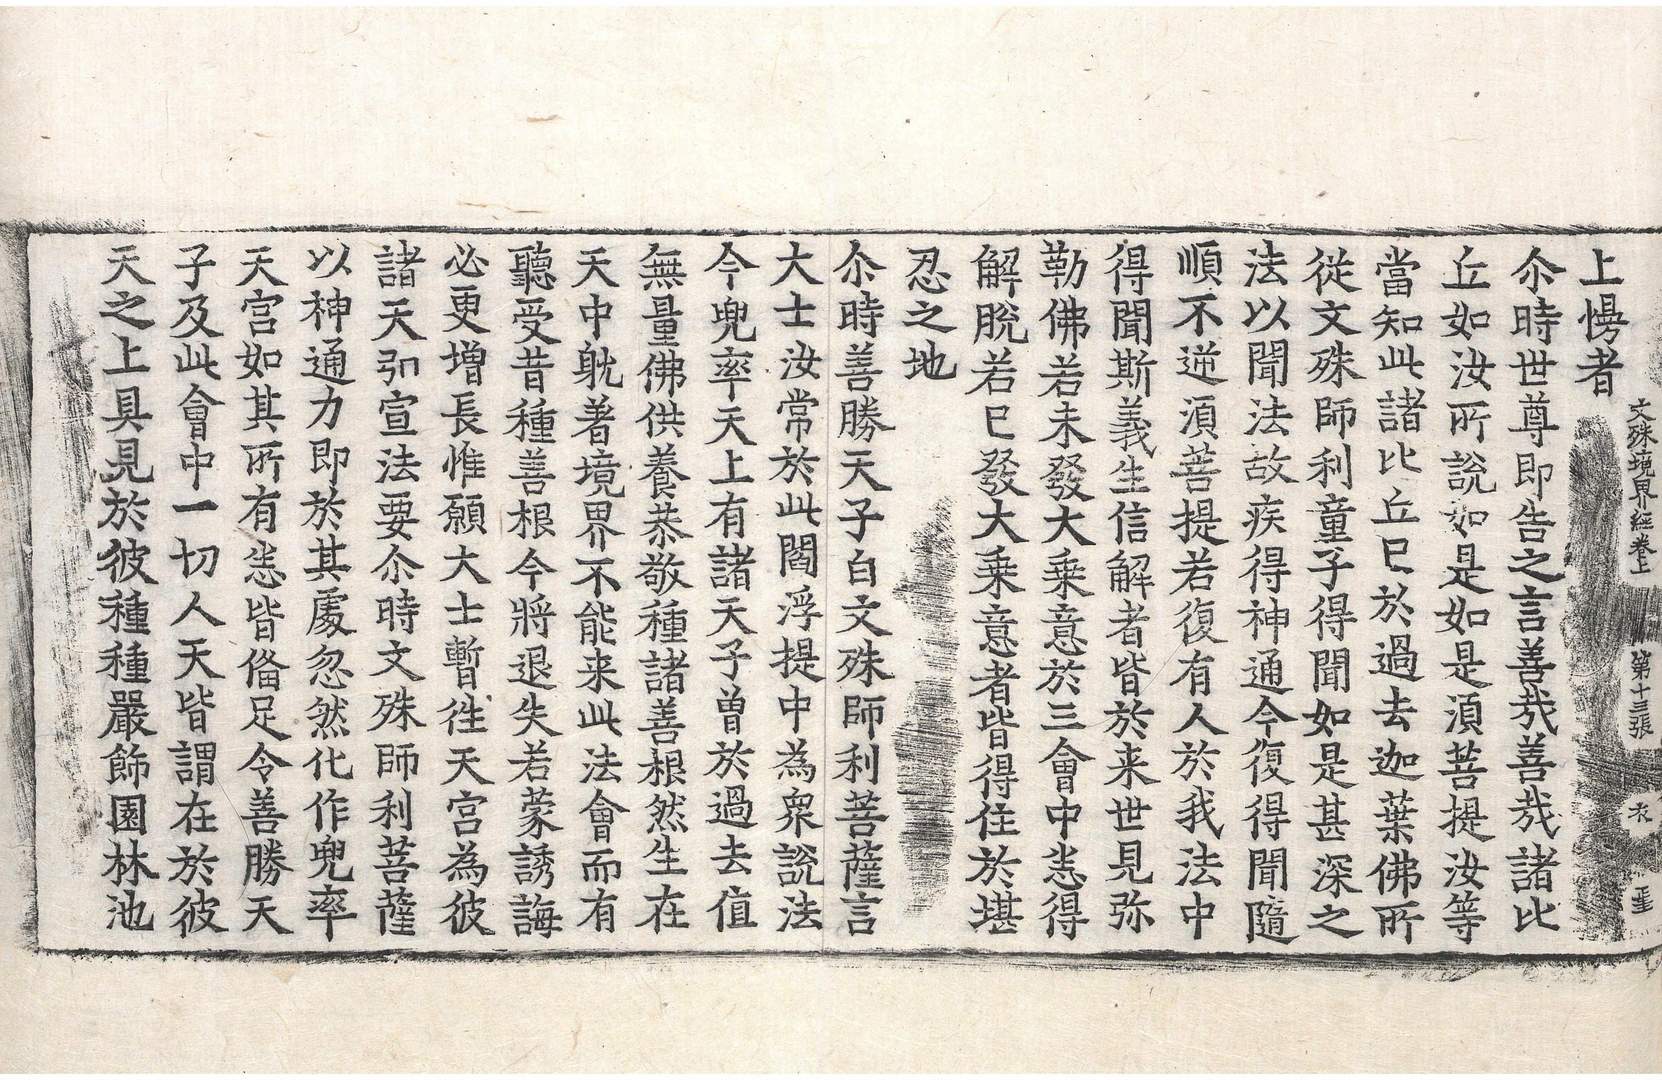 文殊境界經卷上　第十三張　衣
上慢者
尒時世尊即告之言善㢤善㢤諸比
丘如汝所說如是如是湏菩提汝等
當知此諸比丘已於過去迦葉佛所
從文殊師利童子得聞如是甚深之
法以聞法故疾得神通今復得聞隨
順不逆湏菩提若復有人於我法中
得聞斯義生信解者皆於来世見弥
勒佛若未發大乗意於三會中悉得
解脫若已發大乗意者皆得住於堪
忍之地
尒時善勝天子白文殊師利菩薩言
大士汝常於此閻浮提中為衆說法
今兜率天上有諸天子曽於過去值
無量佛供養恭敬種諸善根然生在
天中躭著境界不能来此法會而有
聽受昔種善根今將退失若蒙誘誨
必更增長惟願大士暫徃天宮為彼
諸天弘宣法要尒時文殊師利菩薩
以神通力即於其處忽然化作兜率
天宮如其所有悉皆俻足令善勝天
子及此會中一切人天皆謂在於彼
天之上具見於彼種種嚴飾園林池